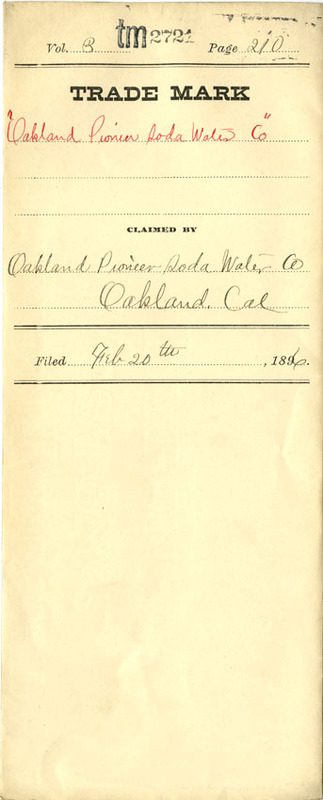 tm 2721
Vol. 3 Page 210
TRADE MARK
"Oakland Pioneer Soda Water Co"
CLAIMED BY
Oakland Pioneer Soda Water Co
Oakland, Cal
Filed Feb 20th, 1896.